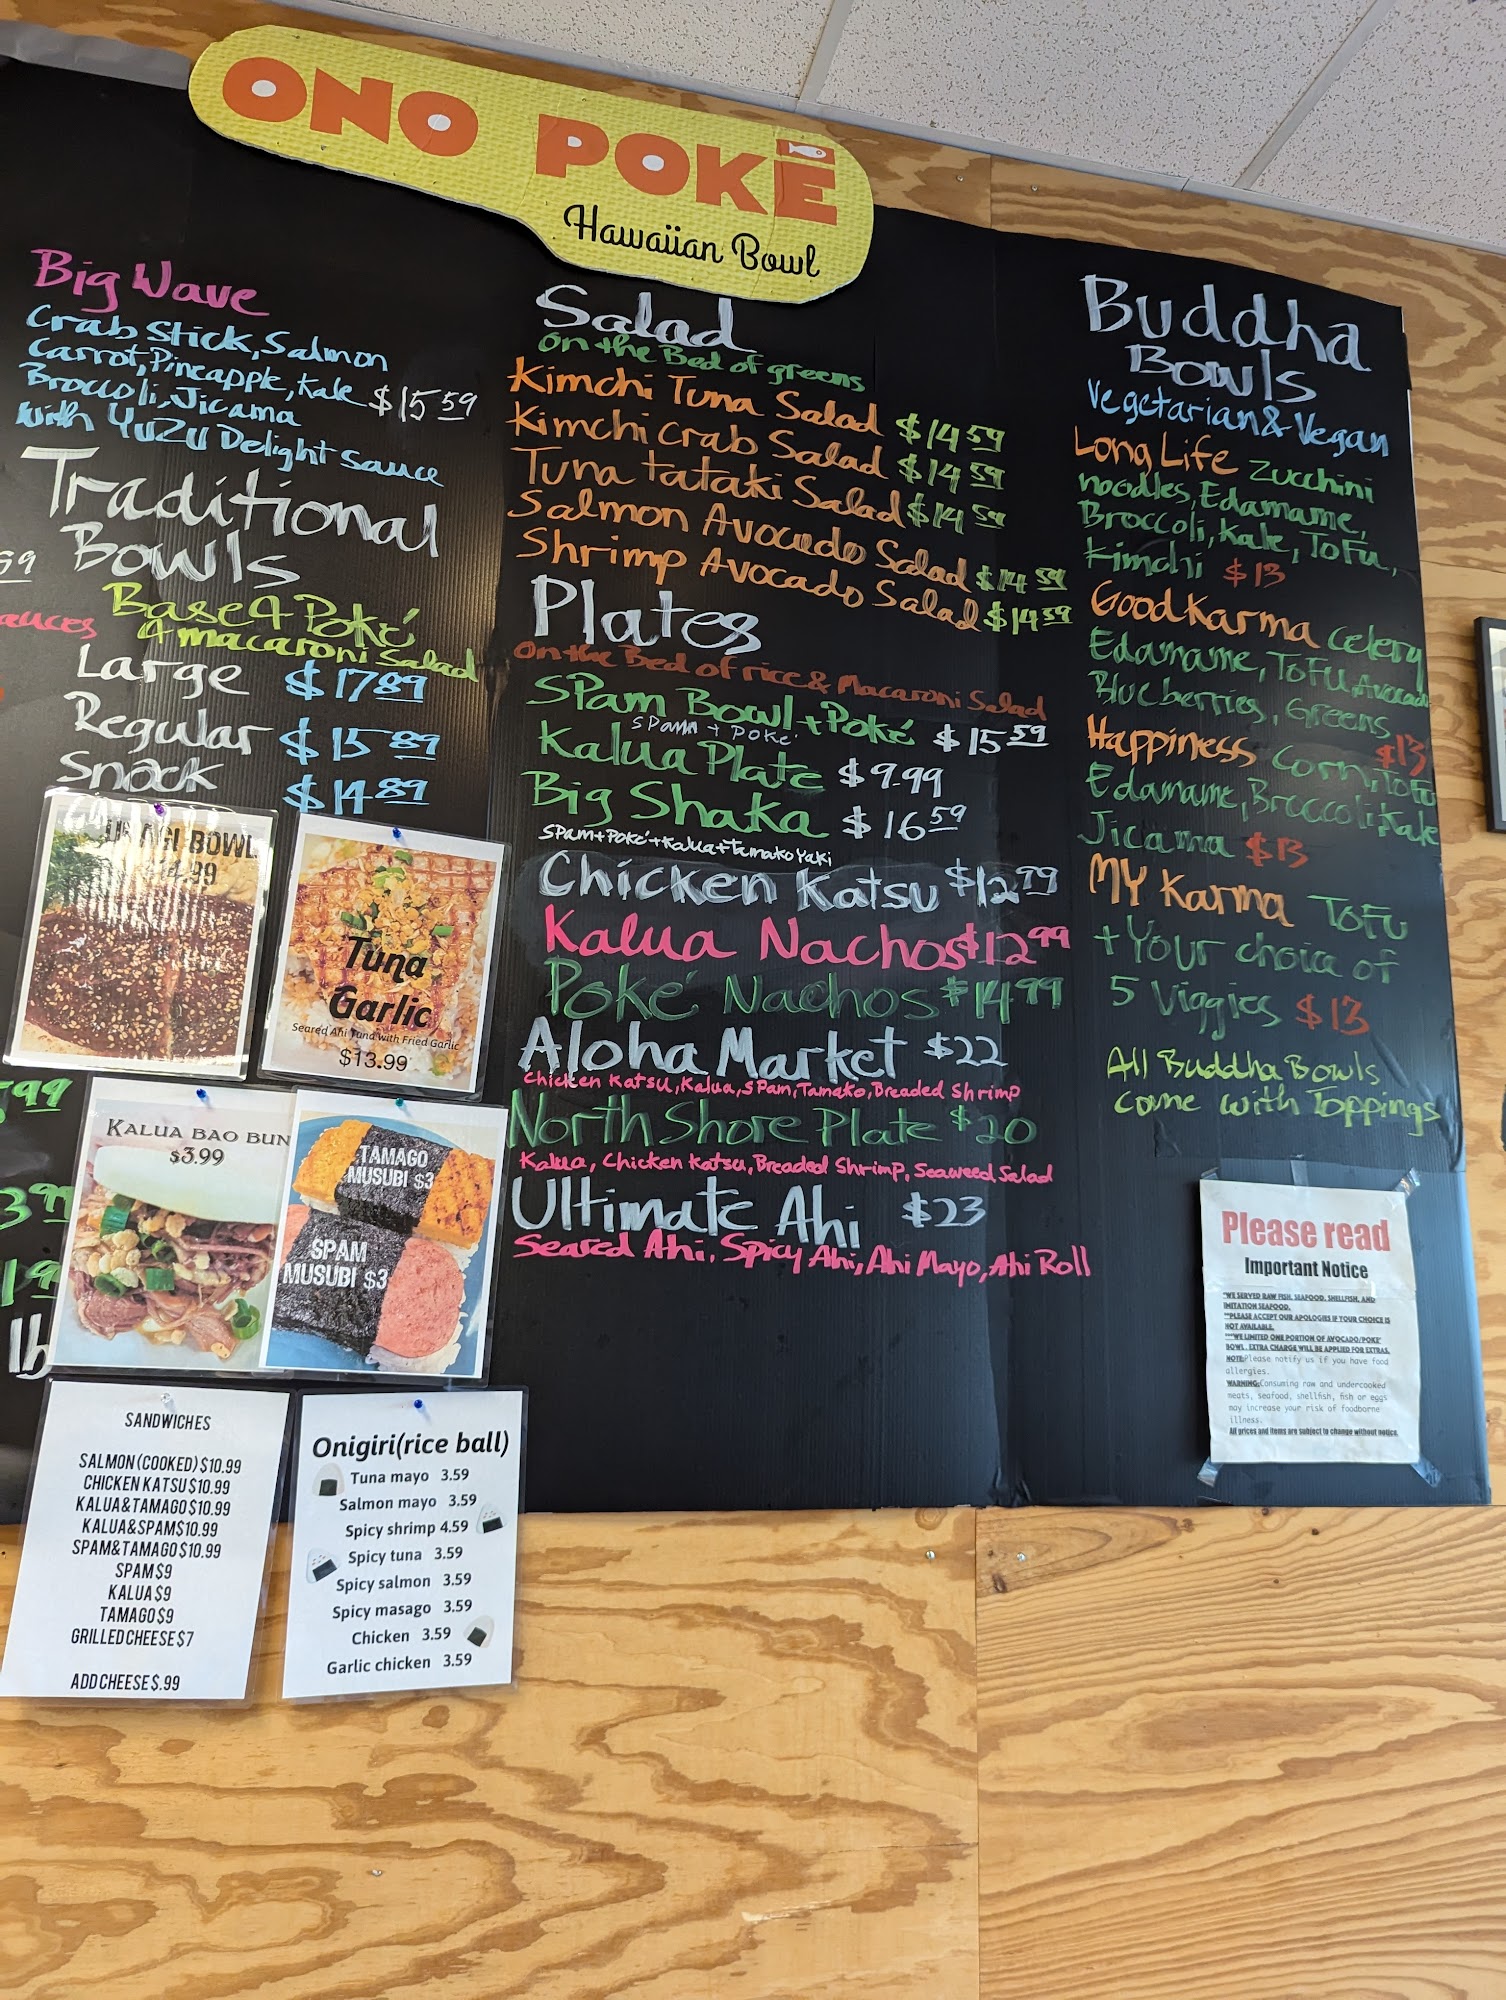 ONO POKÉ
Hawaiian Bowl
Big Wave
Crab Stick, Salmon
Carrot, Pineapple, Kale $15 59
Broccoli, Jicama
with YuZu Delight Sauce
Traditional
Bowls
Base 4 Poké
4 macaroni Salad
Large $17 89
Regular $15 89
Snack $14 89
59
auces
BOWL
Tuna
Garlic
Seared Ahi Tuna with Fried Garlic
$13.99
KALUA BAO BUN
$3.99
TAMAGO
MUSUBI $3
SPAM
MUSUBI $3
lb
SANDWICHES
SALMON (COOKED) $10.99
CHICKEN KATSU $10.99
KALUA & TAMAGO $10.99
KALUA & SPAM $10.99
SPAM & TAMAGO $10.99
SPAM $9
KALUA $9
TAMAGO $9
GRILLED CHEESE $7
ADD CHEESE $.99
Onigiri(rice ball)
Tuna mayo 3.59
Salmon mayo 3.59
Spicy shrimp 4.59
Spicy tuna 3.59
Spicy salmon 3.59
Spicy masago 3.59
Chicken 3.59
Garlic chicken 3.59
Salad
on the Bed of greens
Kimchi Tuna Salad $14 59
Kimchi Crab Salad $14 59
Tuna tataki Salad $14 59
Salmon Avocado Salad $14 59
Shrimp Avocado Salad $14 59
Plates
on the Bed of rice & Macaroni Salad
SPam Bowl + Poké $15 59
SPam + Poke
Kalua Plate $9.99
Big Shaka $16 59
SPam + Poké + Kalua + Tamako Yaki
Chicken Katsu $12 99
Kalua Nachos $12 99
Poké Nachos $14 99
Aloha Market $22
Chicken Katsu, Kalua, SPam, Tamako, Breaded Shrimp
North Shore Plate $20
Kalua, Chicken Katsu, Breaded Shrimp, Seaweed Salad
Ultimate Ahi $23
Seared Ahi, Spicy Ahi, Ahi Mayo, Ahi Roll
Buddha
Bowls
Vegetarian & Vegan
Long Life Zucchini
noodles, Edamame,
Broccoli, Kale, ToFu,
Kimchi $13
Good Karma Celery
Edamame, ToFu, Avocado
Blueberries, Greens
$13
Happiness Corn, ToFu
Edamame, Broccoli, Kale
Jicama $13
MY Karma ToFu
+ Your choice of
5 Viggies $13
All Buddha Bowls
come with Toppings
Please read
Important Notice
*WE SERVED RAW FISH, SEAFOOD, SHELLFISH, AND
IMITATION SEAFOOD.
**PLEASE ACCEPT OUR APOLOGIES IF YOUR CHOICE IS
NOT AVAILABLE.
***WE LIMITED ONE PORTION OF AVOCADO/POKE'
BOWL. EXTRA CHARGE WILL BE APPLIED FOR EXTRAS.
NOTE:Please notify us if you have food
allergies.
WARNING:Consuming raw and undercooked
meats, seafood, shellfish, fish or eggs
may increase your risk of foodborne
illness.
All prices and items are subject to change without notice.